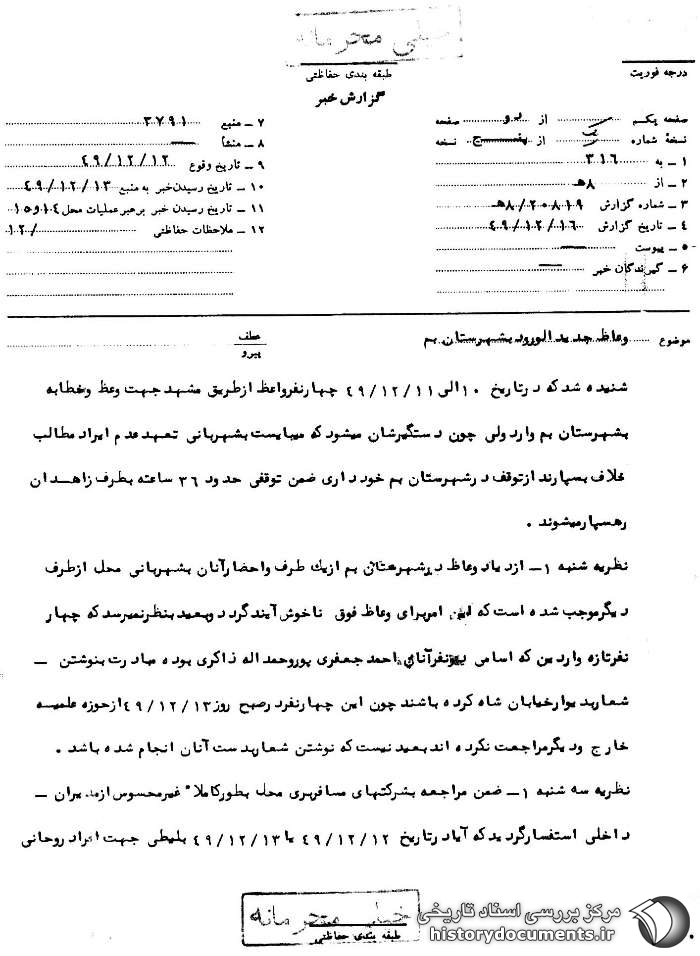 خیلی محرمانه
طبقه بندی حفاظتی
درجه فوریت
گزارش خبر
صفحه یکم از دو صفحه
نسخهٔ شماره یک از پنج نسخه
۱ ـ به ۳۱۶
۲ ـ از ۸هـ
۳ ـ شماره گزارش ۲۰۸۱۹/۸هـ
۴ ـ تاریخ گزارش ۴۹/۱۲/۱۶
۵ ـ پیوست ــ
۶ ـ گیرندگان خبر ــ
۷ ـ منبع ۲۷۹۱
۸ ـ منشأ ــ
۹ ـ تاریخ وقوع ۴۹/۱۲/۱۲
۱۰ ـ تاریخ رسیدن خبر به منبع ۴۹/۱۲/۱۳
۱۱ ـ تاریخ رسیدن خبر برهبر عملیات محل ۱۴و۱۵
۱۲ ـ ملاحظات حفاظتی /۱۲
موضوع وعاظ جدید الورود بشهرستان بم
عطف
پیرو
شنیده شد که در تاریخ ۱۰ الی ۴۹/۱۲/۱۱ چهار نفر واعظ از طریق مشهد جهت وعظ وخطابه
بشهرستان بم وارد ولی چون دستگیرشان میشود که میبایست بشهربانی تعهد عدم ایراد مطالب
خلاف بسپارند از توقف در شهرستان بم خود داری ضمن توقفی حدود ۳۶ ساعته بطرف زاهدان
رهسپار میشوند .
نظریه شنبه ۱ـ ازدیاد وعاظ در شهرستان بم از یک طرف واحضار آنان بشهربانی محل از طرف
دیگر موجب شده است که این امر برای وعاظ فوق ناخوش آیند گردد وبعید بنظر نمیرسد که چهار
نفر تازه واردین که اسامی دو نفر آنان احمد جعفری پور وحمد اله ذاکری بوده مبادرت بنوشتن ـ
شعار بدیوار خیابان شاه کرده باشند چون این چهار نفر در صبح روز ۴۹/۱۲/۱۳ از حوزه علمیسه
خارج ودیگر مراجعت نکرده اند بعید نیست که نوشتن شعار بدست آنان انجام شده باشد .
نظریه سه شنبه ۱ـ ضمن مراجعه بشرکتهای مسافربری محل بطور کاملاً غیر محسوس از مدیران ـ
داخلی استفسار گردید که آیا در تاریخ ۴۹/۱۲/۱۲ یا ۴۹/۱۲/۱۳ بلیطی جهت افراد روحانی
خیلی محرمانه
طبقه بندی حفاظتی
مرکز بررسی اسناد تاریخی
historydocuments.ir